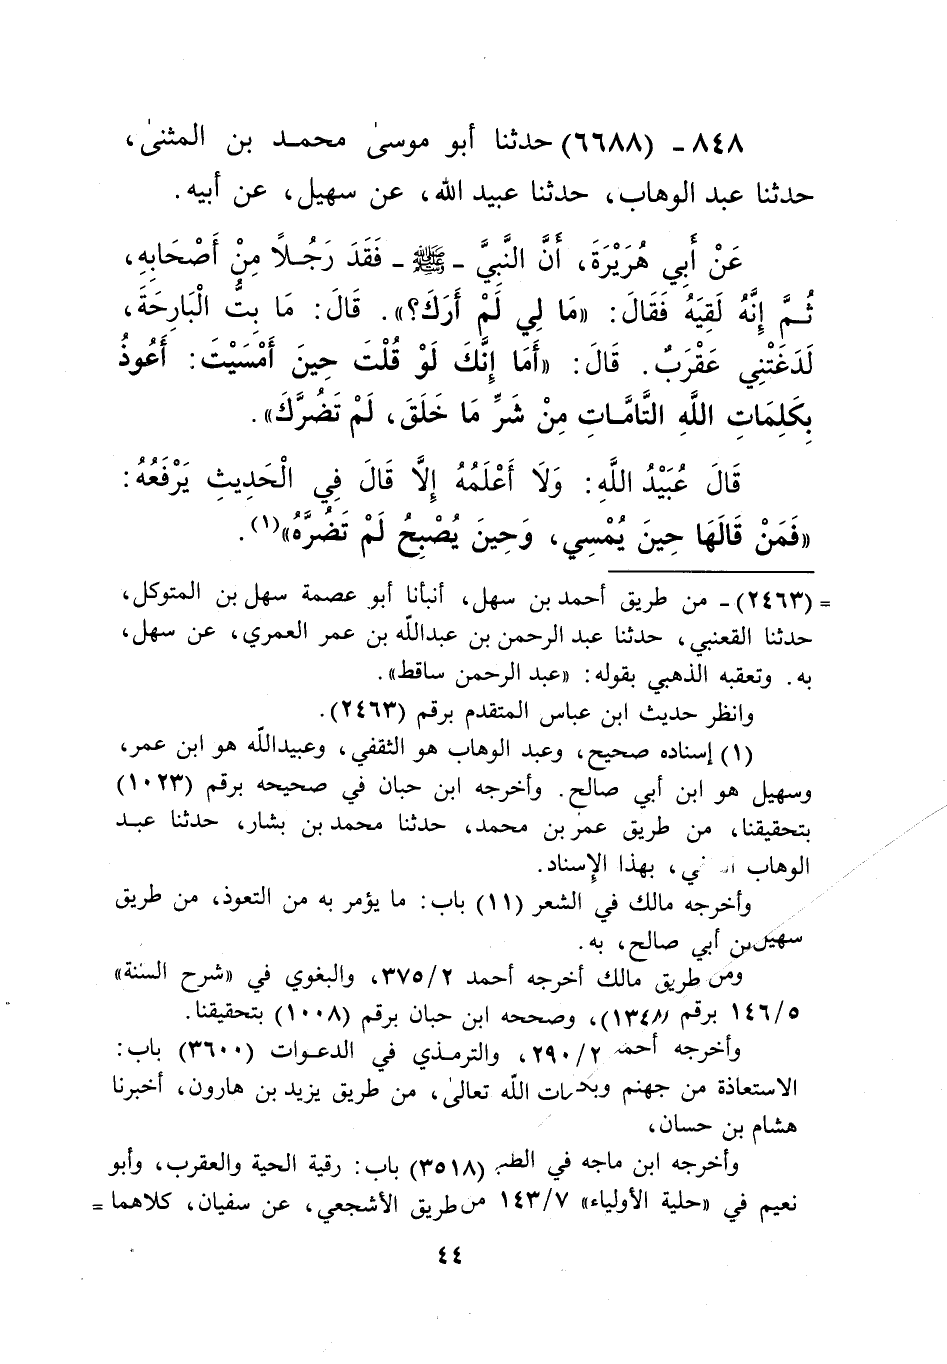 ٨٤٨ - (٦٦٨٨) حدثنا أبو موسىٰ محمـد بن المثنىٰ،
حدثنا عبد الوهاب، حدثنا عبيد الله، عن سهيل، عن أبيه.
عَنْ أَبِي هُرَيْرَةَ، أَنَّ النَّبِيَّ - ﷺ - فَقَدَ رَجُـلاً مِنْ أَصْحَابِهِ،
ثُـمَّ إِنَّهُ لَقِيَهُ فَقَالَ: «مَا لِي لَمْ أَرَكَ؟». قَالَ: مَا بِتُّ الْبَارِحَةَ،
لَدَغَتْنِي عَقْرَبٌ. قَالَ: «أَمَا إِنَّكَ لَوْ قُلْتَ حِينَ أَمْسَيْتَ: أَعُوذُ
بِكَلِمَاتِ اللَّهِ التَّامَّـاتِ مِنْ شَرِّ مَا خَلَقَ، لَمْ تَضُرَّكَ».
قَالَ عُبَيْدُ اللَّهِ: وَلَا أَعْلَمُهُ إِلَّا قَالَ فِي الْحَدِيثِ يَرْفَعُهُ:
«فَمَنْ قَالَهَا حِينَ يُمْسِي، وَحِينَ يُصْبِحُ لَمْ تَضُرَّهُ»(١).
= (٢٤٦٣) - من طريق أحمد بن سهل، أنبأنا أبو عصمة سهل بن المتوكل،
حدثنا القعنبي، حدثنا عبد الرحمن بن عبدالله بن عمر العمري، عن سهل،
به. وتعقبه الذهبي بقوله: «عبد الرحمن ساقط».
وانظر حديث ابن عباس المتقدم برقم (٢٤٦٣).
(١) إسناده صحيح، وعبد الوهاب هو الثقفي، وعبيدالله هو ابن عمر،
وسهيل هو ابن أبي صالح. وأخرجه ابن حبان في صحيحه برقم (١٠٢٣)
بتحقيقنا، من طريق عمر بن محمد، حدثنا محمد بن بشار، حدثنا عبـد
الوهاب ، بهذا الإسناد.
وأخرجه مالك في الشعر (١١) باب: ما يؤمر به من التعوذ، من طريق
سهيل بن أبي صالح، به.
ومن طريق مالك أخرجه أحمد ٣٧٥/٢، والبغوي في «شرح السنة»
١٤٦/٥ برقم (١٣٤٨)، وصححه ابن حبان برقم (١٠٠٨) بتحقيقنا.
وأخرجه أحمد ٢٩٠/٢، والترمـذي في الدعـوات (٣٦٠٠) باب:
الاستعاذة من جهنم الله تعالىٰ، من طريق يزيد بن هارون، أخبرنا
هشام بن حسان،
وأخرجه ابن ماجه في الطب (٣٥١٨) باب: رقية الحية والعقرب، وأبو
نعيم في «حلية الأولياء» ١٤٣/٧ من طريق الأشجعي، عن سفيان، كلاهما =
٤٤